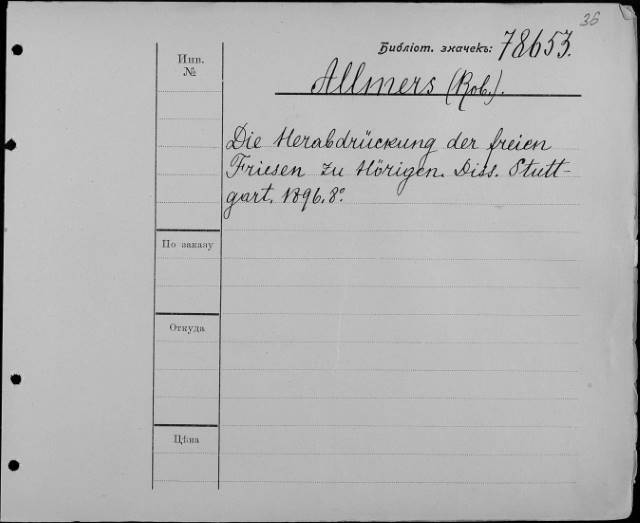 36
Библіот. значекъ: 78653.
Инв.
№
Allmers (Rob.).
Die Herabdrückung der freien
Friesen zu Hörigen. Diss. Stutt-
gart. 1896. 8°.
По заказу
Откуда
Цѣна